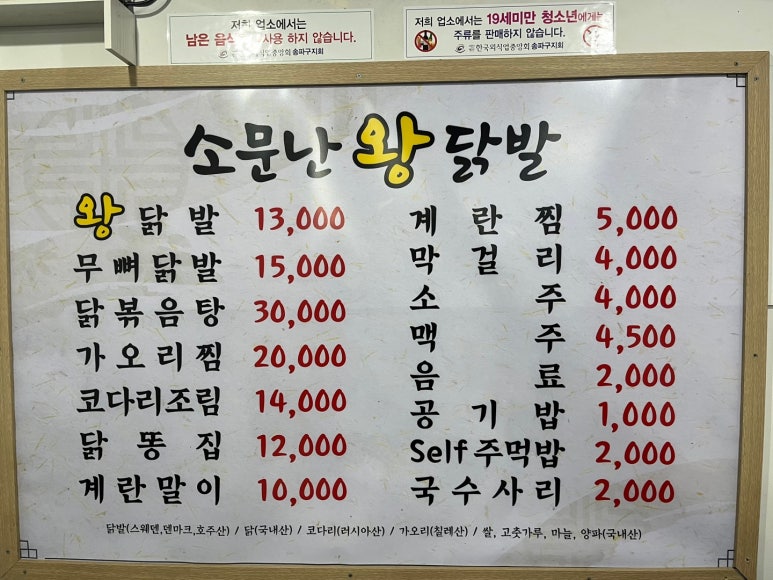 저희 업소에서는
남은 음식 사용 하지 않습니다.
한국외식업중앙회 송파구지회
저희 업소에서는 19세미만 청소년에게는
주류를 판매하지 않습니다.
한국외식업중앙회 송파구지회
소문난 왕 닭발
왕닭발 13,000
무뼈닭발 15,000
닭볶음탕 30,000
가오리찜 20,000
코다리조림 14,000
닭똥집 12,000
계란말이 10,000
계란찜 5,000
막걸리 4,000
소주 4,000
맥주 4,500
음료 2,000
공기밥 1,000
Self주먹밥 2,000
국수사리 2,000
닭발(스웨덴,덴마크,호주산) / 닭(국내산) / 코다리(러시아산) / 가오리(칠레산) / 쌀, 고춧가루, 마늘, 양파(국내산)